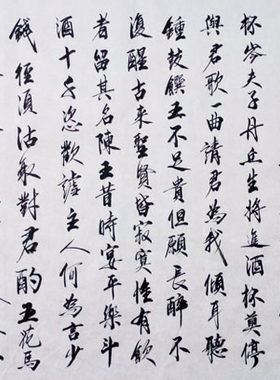 杯岑夫子丹丘生将進酒杯莫停
與君歌一曲請君為我傾耳聽
鍾鼓饌玉不足貴但願長醉不
復醒古來聖賢皆寂寞惟有飲
者留其名陳王昔時宴平樂斗
酒十千恣歡謔主人何為言少
錢徑須沽取對君酌五花馬